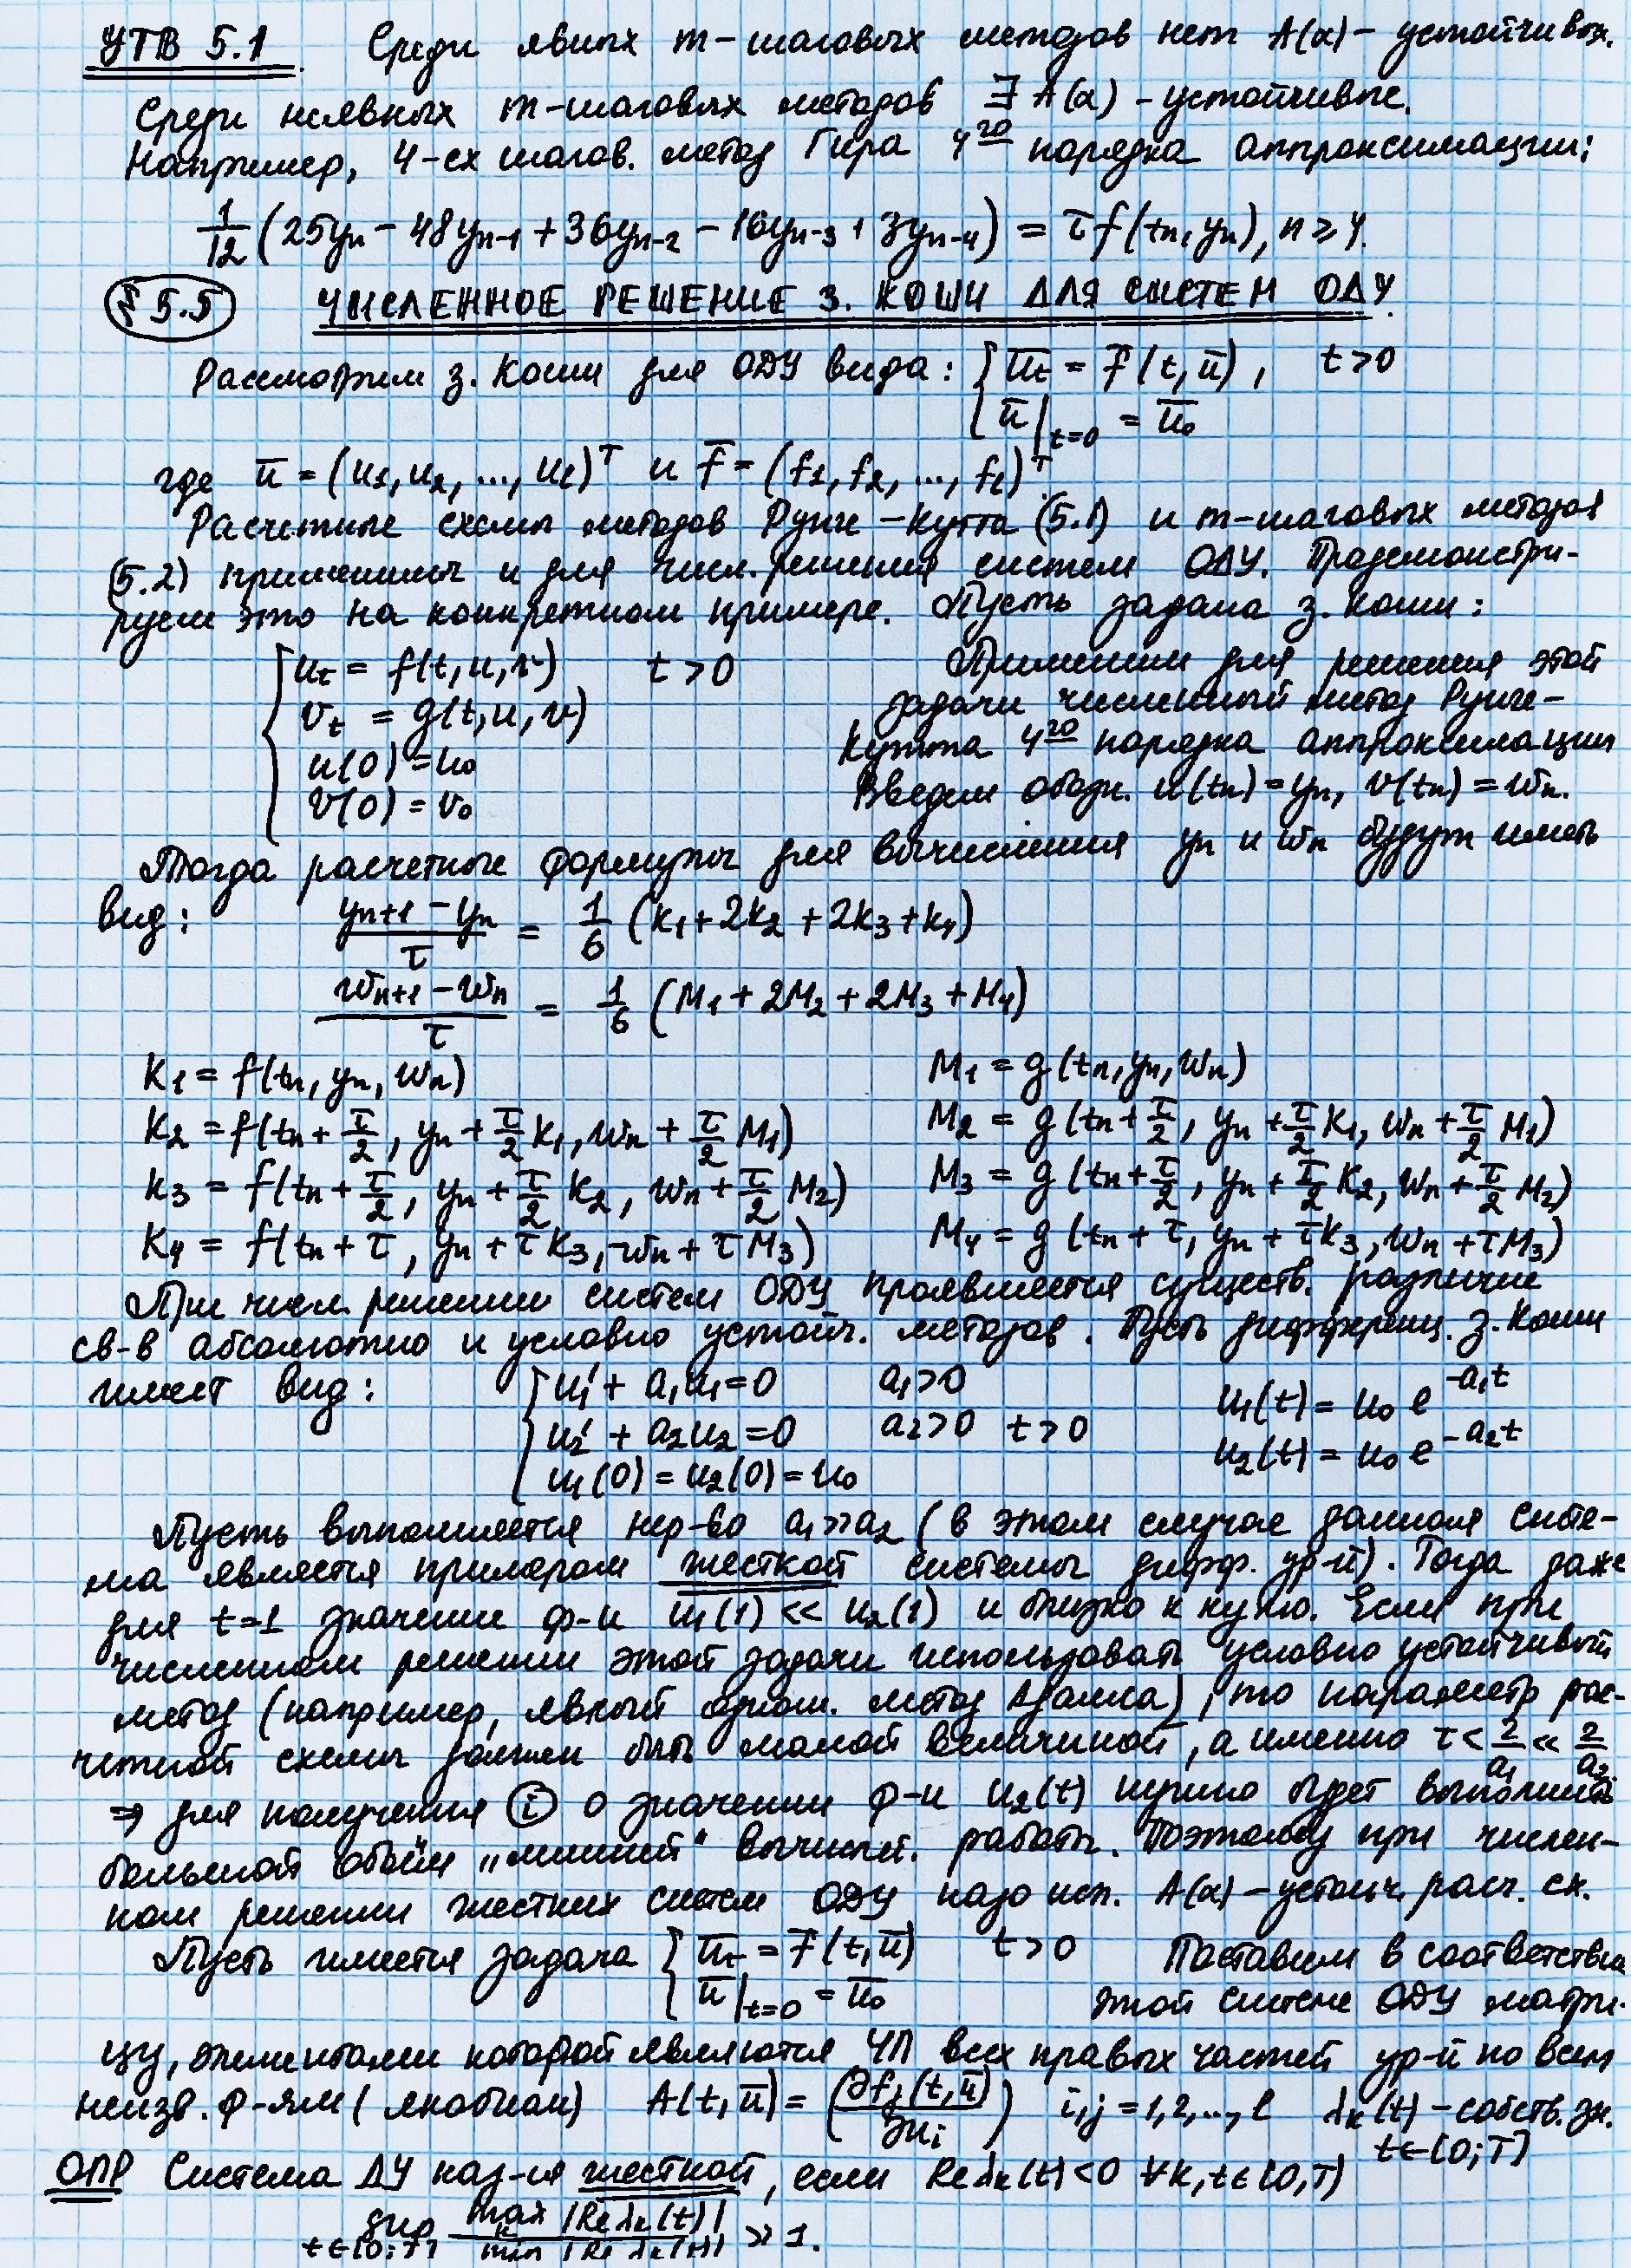 УТВ 5.1 Среди явных m-шаговых методов нет A(α)-устойчивых.
Среди неявных m-шаговых методов ∃ A(α)-устойчивые.
Например, 4-ех шагов. метод Гира 4го порядка аппроксимации:
1/12 (25yn - 48yn-1 + 36yn-2 - 16yn-3 + 3yn-4) = τf(tn, yn), n ≥ 4.
§ 5.5 ЧИСЛЕННОЕ РЕШЕНИЕ З. КОШИ ДЛЯ СИСТЕМ ОДУ.
Рассмотрим з. Коши для ОДУ вида: { ūt = f̄(t, ū), t>0
ū|t=0 = ū0
где ū = (u1, u2, ..., ul)^T и f̄ = (f1, f2, ..., fl)^T.
Расчетные схемы методов Рунге-Кутта (5.1) и m-шаговых методов
(5.2) применимы и для числ. решения систем ОДУ. Продемонстри-
руем это на конкретном примере. Пусть задана з. Коши:
{ ut = f(t, u, v) t > 0 Применим для решения этой
vt = g(t, u, v) задачи численный метод Рунге-
u(0) = u0 Кутта 4го порядка аппроксимации
v(0) = v0 Введем обозн. u(tn) = yn, v(tn) = wn.
Тогда расчетные формулы для вычисления yn и wn будут иметь
вид: (yn+1 - yn)/τ = 1/6 (k1 + 2k2 + 2k3 + k4)
(wn+1 - wn)/τ = 1/6 (M1 + 2M2 + 2M3 + M4)
K1 = f(tn, yn, wn) M1 = g(tn, yn, wn)
K2 = f(tn + τ/2, yn + τ/2 K1, wn + τ/2 M1) M2 = g(tn + τ/2, yn + τ/2 K1, wn + τ/2 M1)
K3 = f(tn + τ/2, yn + τ/2 K2, wn + τ/2 M2) M3 = g(tn + τ/2, yn + τ/2 K2, wn + τ/2 M2)
K4 = f(tn + τ, yn + τK3, wn + τM3) M4 = g(tn + τ, yn + τK3, wn + τM3)
При числ. решении систем ОДУ проявляется существ. различие
св-в абсолютно и условно устойч. методов. Пусть дифференц. з. Коши
имеет вид: { u1' + a1u1 = 0 a1>0 u1(t) = u0 e^(-a1t)
u2' + a2u2 = 0 a2>0 t > 0 u2(t) = u0 e^(-a2t)
u1(0) = u2(0) = u0
Пусть выполняется нер-во a1>>a2 (в этом случае данная систе-
ма является примером жесткой системы дифф. ур-й). Тогда даже
для t=1 значение ф-и u1(1) << u2(1) и близко к нулю. Если при
численном решении этой задачи использовать условно устойчивый
метод (например, явный одном. метод Адамса), то параметр рас-
четной схемы должен быть малой величиной, а именно τ < 2/a1 << 2/a2
⇒ для получения (i) о значении ф-и u2(t) нужно будет выполнить
большой объём „лишней" вычислит. работы. Поэтому при числен-
ном решении жестких систем ОДУ надо исп. A(α)-устойч. расч. сх.
Пусть имеется задача { ūt = f̄(t, ū) t > 0 Поставим в соответствие
ū|t=0 = ū0 этой системе ОДУ матри-
цу, элементами которой являются ЧП всех правых частей ур-й по всем
неизв. ф-ям (якобиан) A(t, ū) = (∂fj(t, ū)/∂ui) i,j = 1,2,..., l λk(t) - собств. зн.
t∈[0;T]
ОПР Система ДУ наз-ся жесткой, если Re λk(t) < 0 ∀k, t∈[0,T)
sup t∈[0;T] max k |Re λk(t)| / min |Re λk(t)| >> 1.